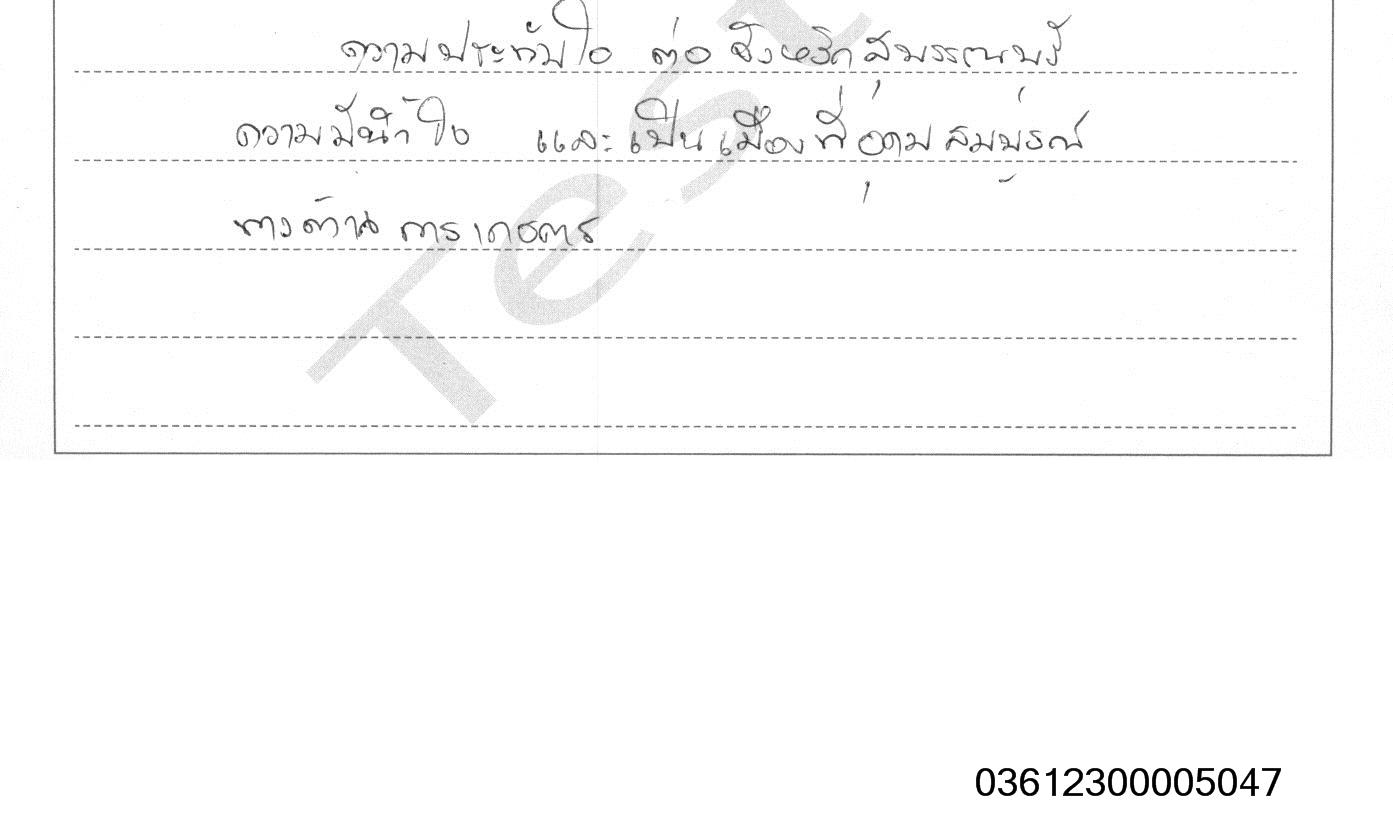 ความประทับใจ ต่อ จังหวัดสุพรรณบุรี
ความมีน้ำใจ และ เป็นเมืองที่อุดมสมบูรณ์
ทางด้าน การเกษตร
Test
03612300005047